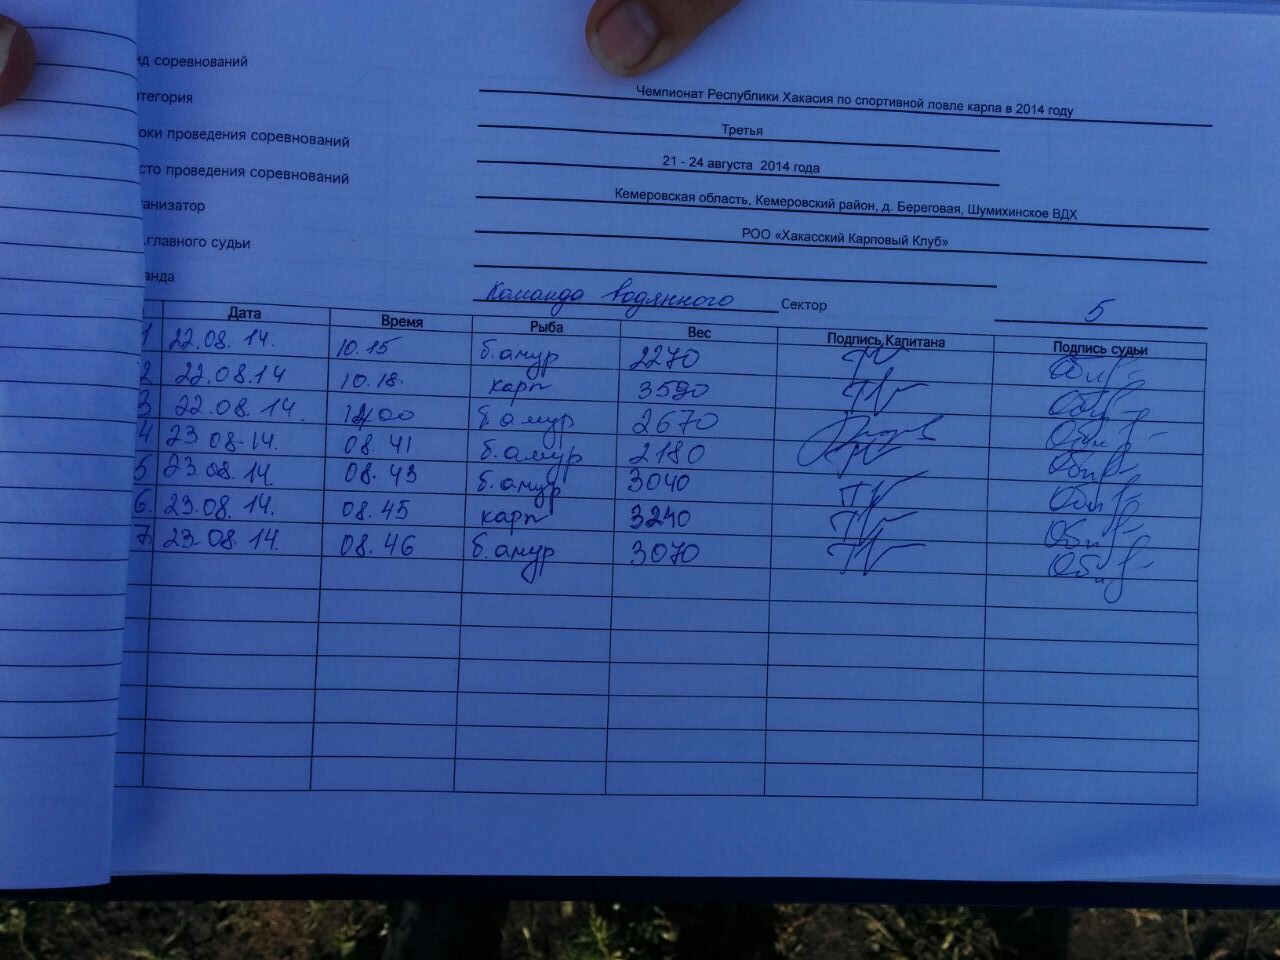 ид соревнований
Чемпионат Республики Хакасия по спортивной ловле карпа в 2014 году
тегория
Третья
оки проведения соревнований
21 - 24 августа 2014 года
сто проведения соревнований
Кемеровская область, Кемеровский район, д. Береговая, Шумихинское ВДХ
ганизатор
РОО «Хакасский Карповый Клуб»
.главного судьи
анда Команда водянного Сектор 5
Дата Время Рыба Вес Подпись Капитана Подпись судьи
1 22.08.14. 10.15 б.амур 2270
2 22.08.14 10.18. карп 3590
3 22.08.14. б.амур 2670
4 23 08-14. 08.41 б.амур 2180
5 23.08.14 08.43 б.амур 3040
6. 23.08.14. 08.45 карп 3240
7. 23-08.14. 08.46 б.амур 3070